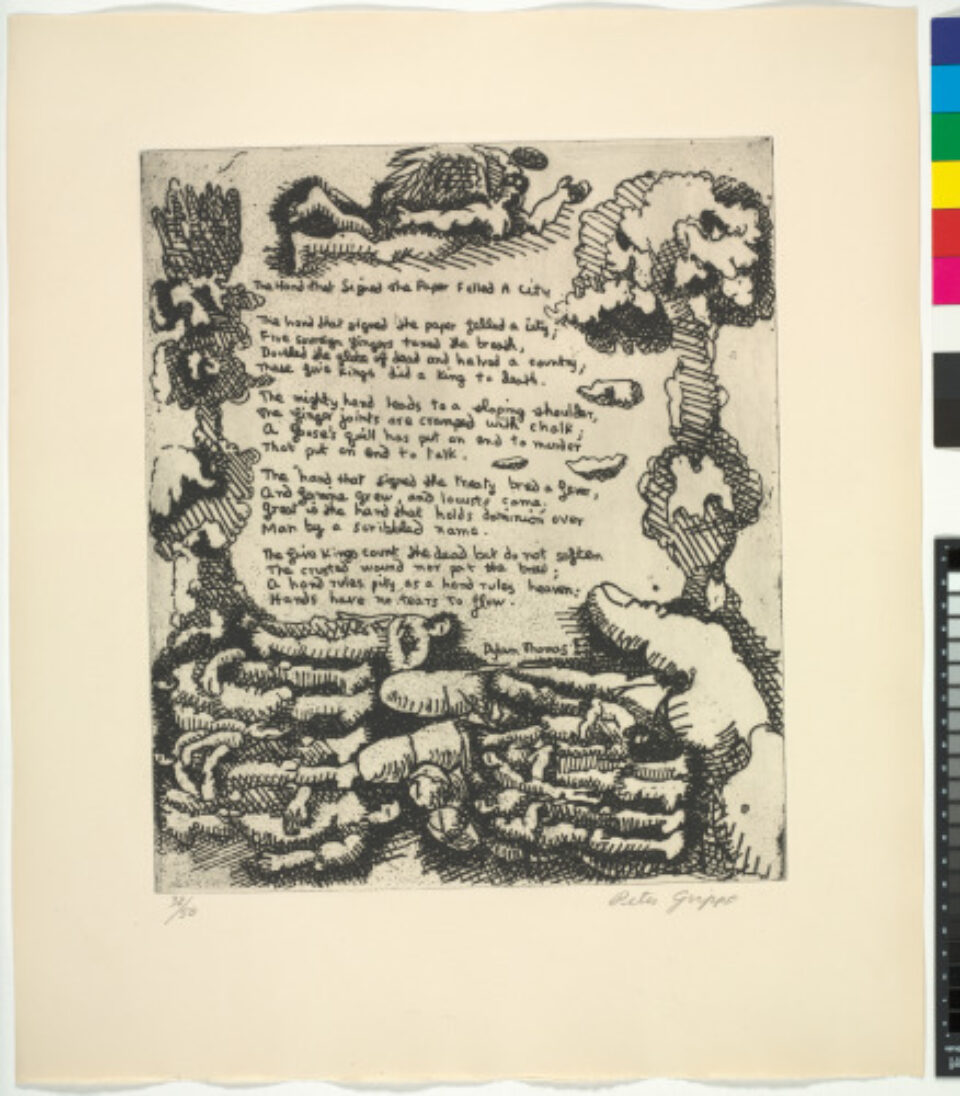 The Hand that Signed the Paper Felled A City
The hand that signed the paper felled a city;
Five sovereign fingers taxed the breath,
Doubled the globe of dead and halved a country;
These five kings did a king to death.
The mighty hand leads to a sloping shoulder,
The finger joints are cramped with chalk;
A goose's quill has put an end to murder
That put an end to talk.
The hand that signed the treaty bred a fever,
And famine grew, and locusts came;
Great is the hand that holds dominion over
Man by a scribbled name.
The five kings count the dead but do not soften
The crusted wound nor pat the brow;
A hand rules pity as a hand rules heaven;
Hands have no tears to flow.
Dylan Thomas
/50
Peter Grippe